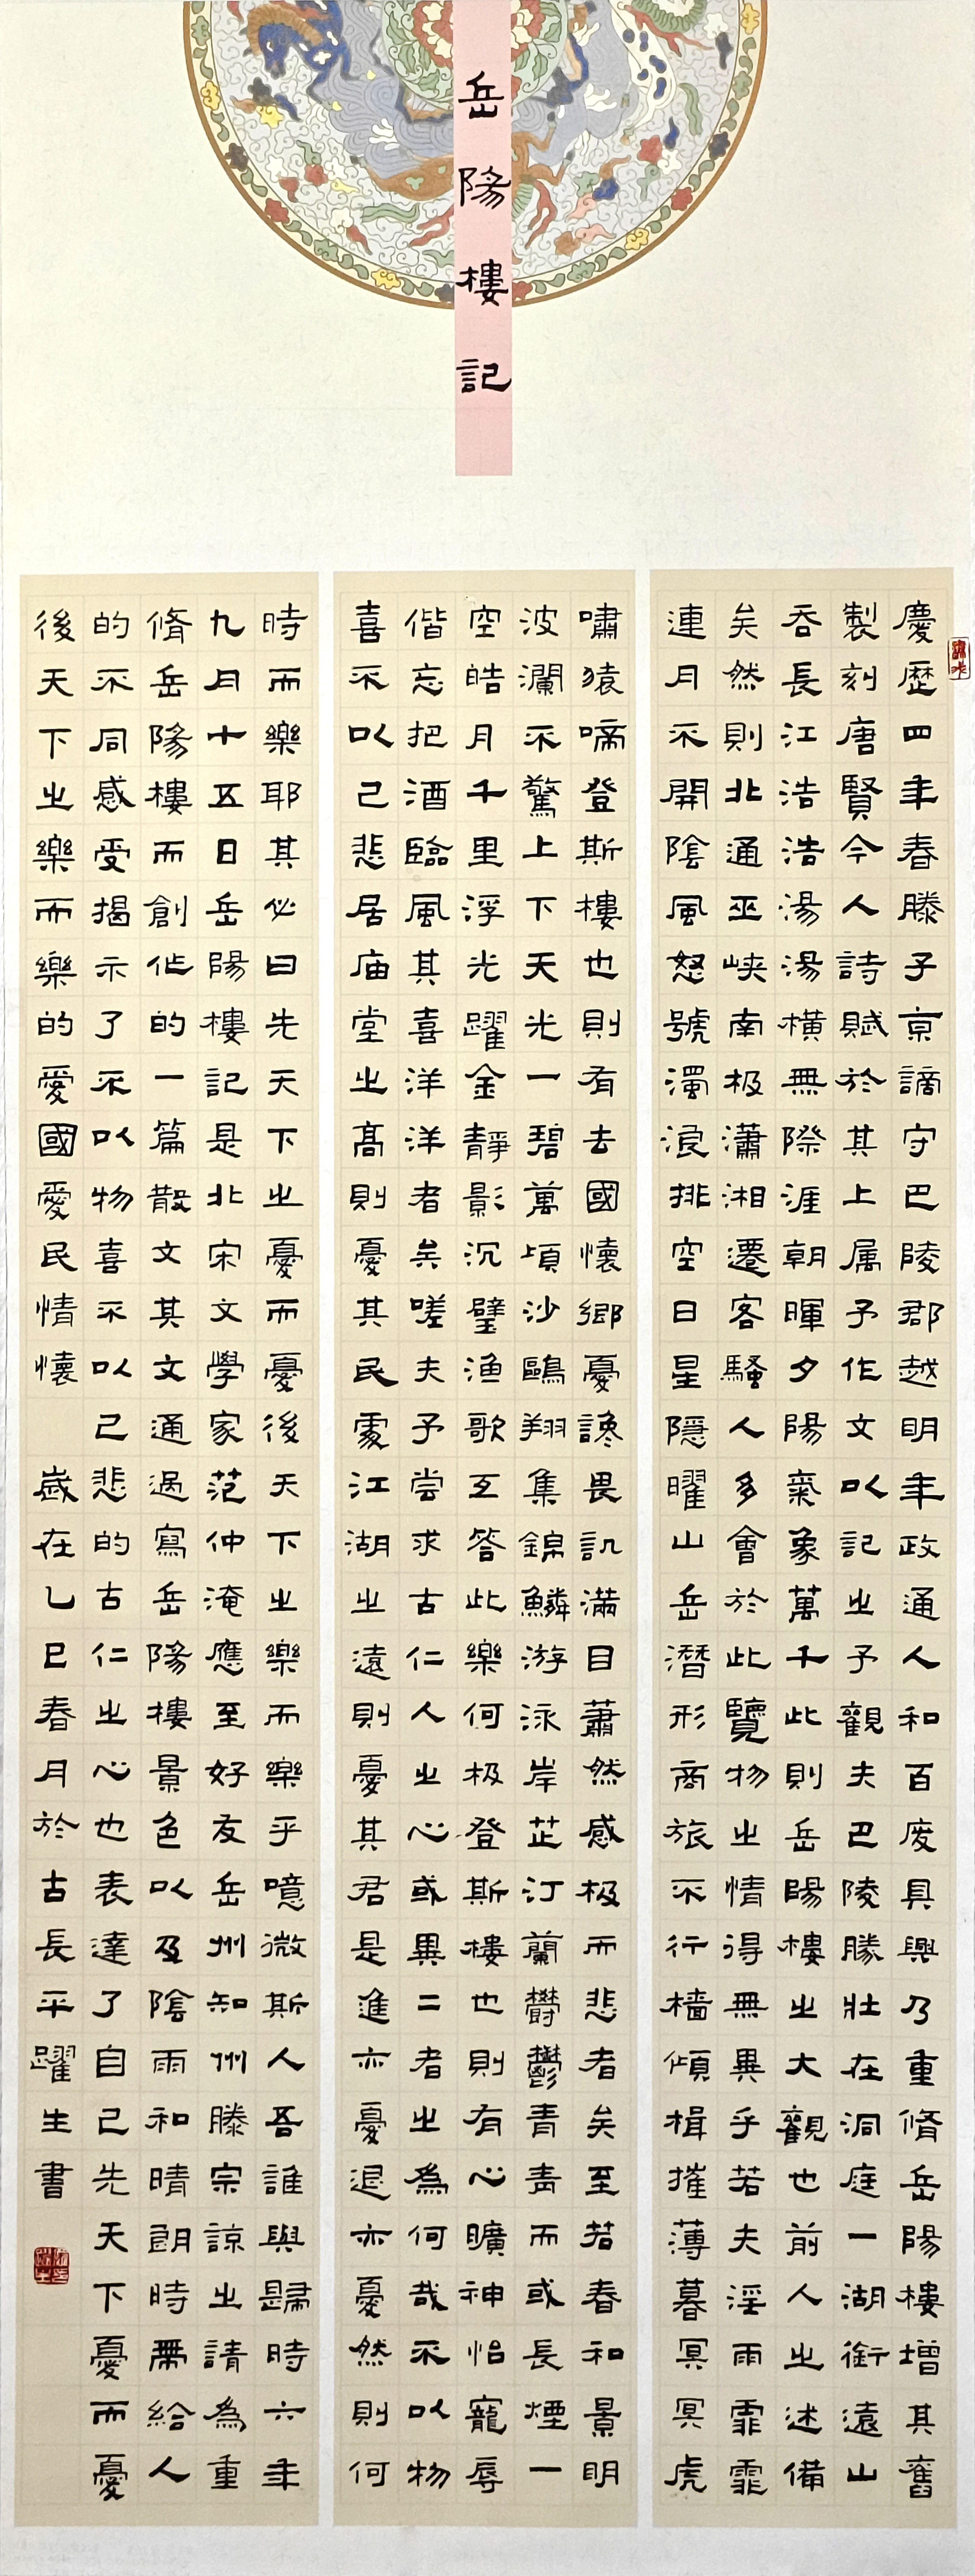 岳陽樓記
慶歷四年春滕子京謫守巴陵郡越明年政通人和百廢具興乃重脩岳陽樓增其舊
製刻唐賢今人詩賦於其上属予作文以記之予觀夫巴陵勝壯在洞庭一湖銜遠山
吞長江浩浩湯湯橫無際涯朝暉夕陽氣象萬千此則岳陽樓之大觀也前人之述備
矣然則北通巫峽南极瀟湘遷客騷人多會於此覽物之情得無異乎若夫淫雨霏霏
連月不開陰風怒號濁浪排空日星隱曜山岳潛形商旅不行檣傾楫摧薄暮冥冥虎
嘯猿啼登斯樓也則有去國懷鄉憂讒畏讥滿目蕭然感极而悲者矣至若春和景明
波瀾不驚上下天光一碧萬頃沙鷗翔集錦鱗游泳岸芷汀蘭鬱鬱青青而或長煙一
空皓月千里浮光躍金靜影沉璧渔歌互答此樂何极登斯樓也則有心曠神怡寵辱
偕忘把酒臨風其喜洋洋者矣嗟夫予嘗求古仁人之心或異二者之為何哉不以物
喜不以己悲居庙堂之高則憂其民處江湖之遠則憂其君是進亦憂退亦憂然則何
時而樂耶其必曰先天下之憂而憂後天下之樂而樂乎噫微斯人吾誰與歸時六年
九月十五日岳陽樓記是北宋文學家范仲淹應至好友岳州知州滕宗諒之請為重
脩岳陽樓而創作的一篇散文其文通過寫岳陽樓景色以及陰雨和晴朗時帶給人
的不同感受揭示了不以物喜不以己悲的古仁之心也表達了自己先天下憂而憂
後天下之樂而樂的愛國愛民情懷 歲在乙巳春月於古長平躍生書